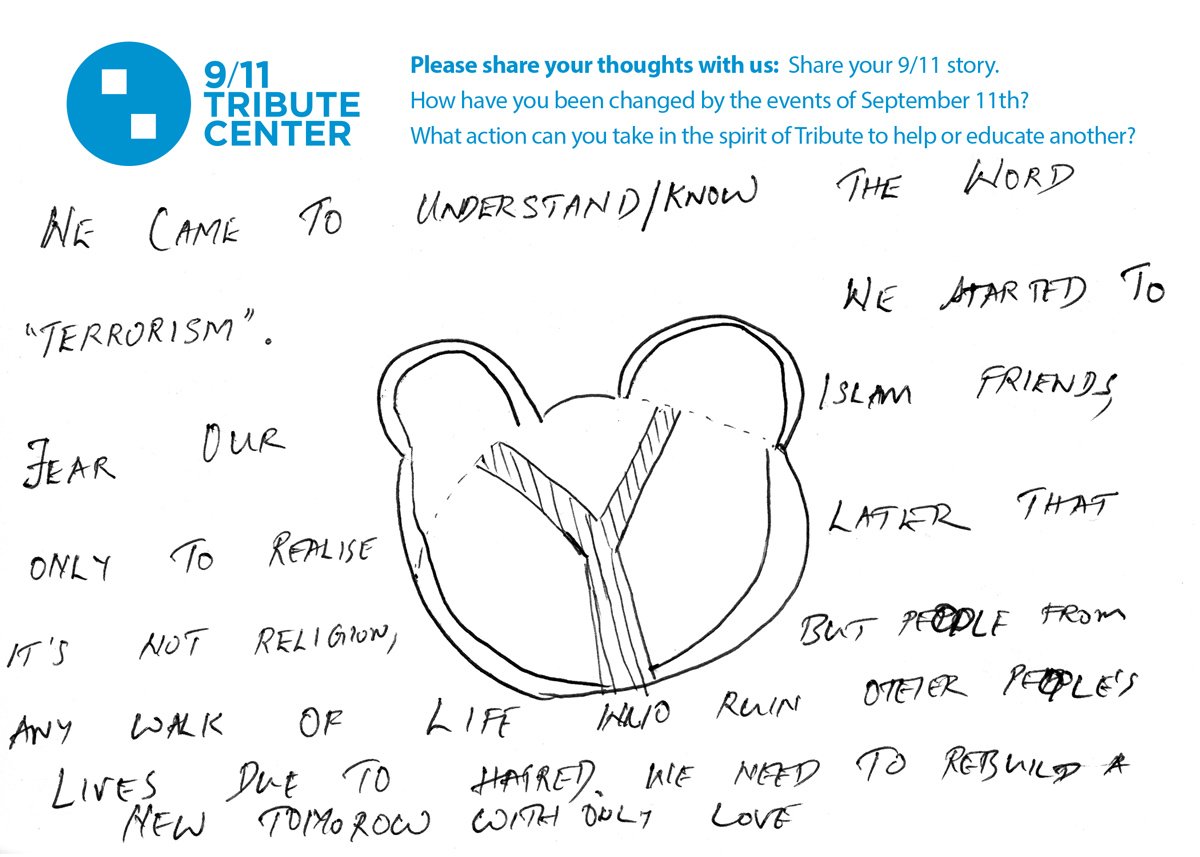 9/11
TRIBUTE
CENTER
Please share your thoughts with us: Share your 9/11 story.
How have you been changed by the events of September 11th?
What action can you take in the spirit of Tribute to help or educate another?
WE CAME TO UNDERSTAND/KNOW THE WORD
"TERRORISM". WE STARTED TO
FEAR OUR ISLAM FRIENDS,
ONLY TO REALISE LATER THAT
IT'S NOT RELIGION, BUT PEOPLE FROM
ANY WALK OF LIFE WHO RUIN OTHER PEOPLE'S
LIVES DUE TO HATRED. WE NEED TO REBUILD A
NEW TOMOROW WITH ONLY LOVE